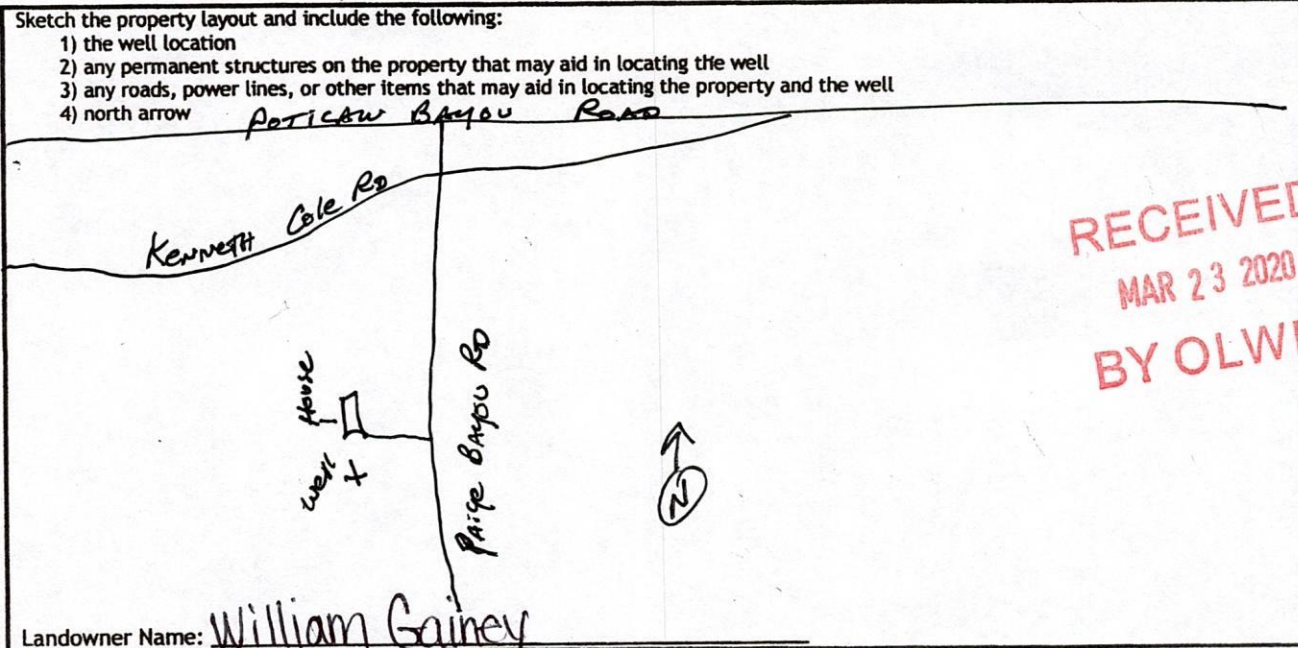 Sketch the property layout and include the following:
1) the well location
2) any permanent structures on the property that may aid in locating the well
3) any roads, power lines, or other items that may aid in locating the property and the well
4) north arrow
POTICAW BAYOU ROAD
KENNETH Cole RD
RECEIVED
MAR 23 2020
BY OLW
House
Well
PAIGE BAYOU RD
N
Landowner Name: William Gainey